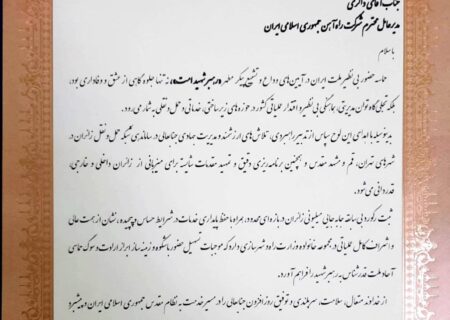 جناب آقای ذاکری
مدیرعامل محترم شرکت راه‌آهن جمهوری اسلامی ایران
با سلام
حماسه حضور بی‌نظیر ملت ایران در آیین‌های وداع و تشییع پیکر مطهر «رهبر شهید امت» نه تنها جلوه‌گاهی از عشق و وفاداری بود،
بلکه تجلی‌گاه توان مدیریتی، هماهنگی بی‌نظیر و اقتدار عملیاتی کشور در حوزه‌های زیرساختی، خدماتی و حمل و نقلی به شمار می‌رود.
بدینوسیله با اهدای این لوح سپاس از تدبیر راهبردی، تلاش‌های ارزشمند و مدیریت جهادی جنابعالی در ساماندهی شبکه حمل و نقل زائران در
شهرهای تهران، قم و مشهد مقدس و همچنین برنامه‌ریزی دقیق و تمهید مقدمات شایسته برای میزبانی از زائران داخلی و خارجی،
قدردانی می‌شود.
ثبت رکورد بی‌سابقه جابه‌جایی میلیونی زائران در بازه‌ای محدود، همراه با حفظ پایداری خدمات در شرایط حساس و پیچیده، نشان از همت عالی
و اشراف کامل عملیاتی در مجموعه خانواده وزارت راه و شهرسازی دارد که موجبات تسهیل حضور باشکوه و زمینه‌ساز ابراز ارادت و سوگ حماسی
آحاد ملت قدرشناس به رهبر شهید را فراهم آورد.
از خداوند متعال، سلامت، سربلندی و توفیق روزافزون جنابعالی را در مسیر خدمت به نظام مقدس جمهوری اسلامی ایران و پیشبرد